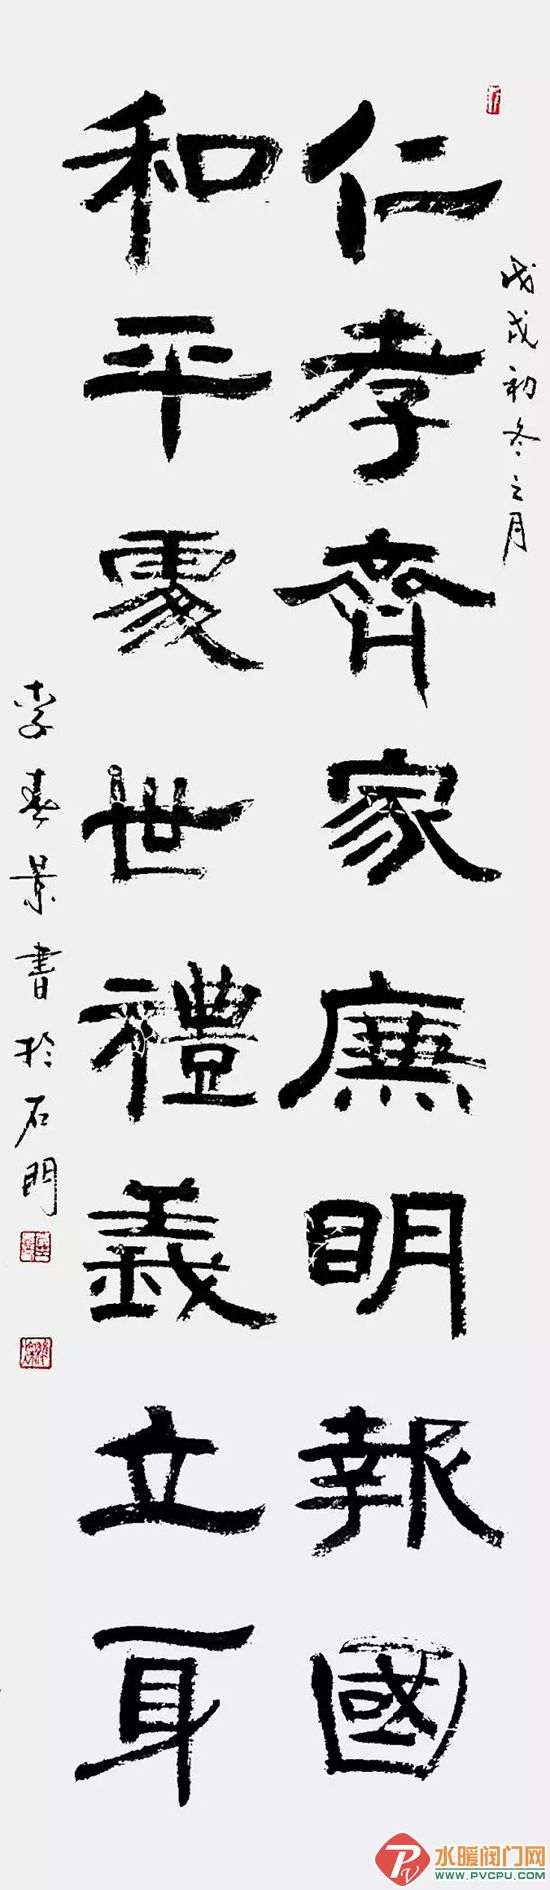 戊戌初冬之月
仁孝齊家廉明報國
和平處世禮義立身
李春景書於石門
水暖阀门网
WWW.PVCPU.COM